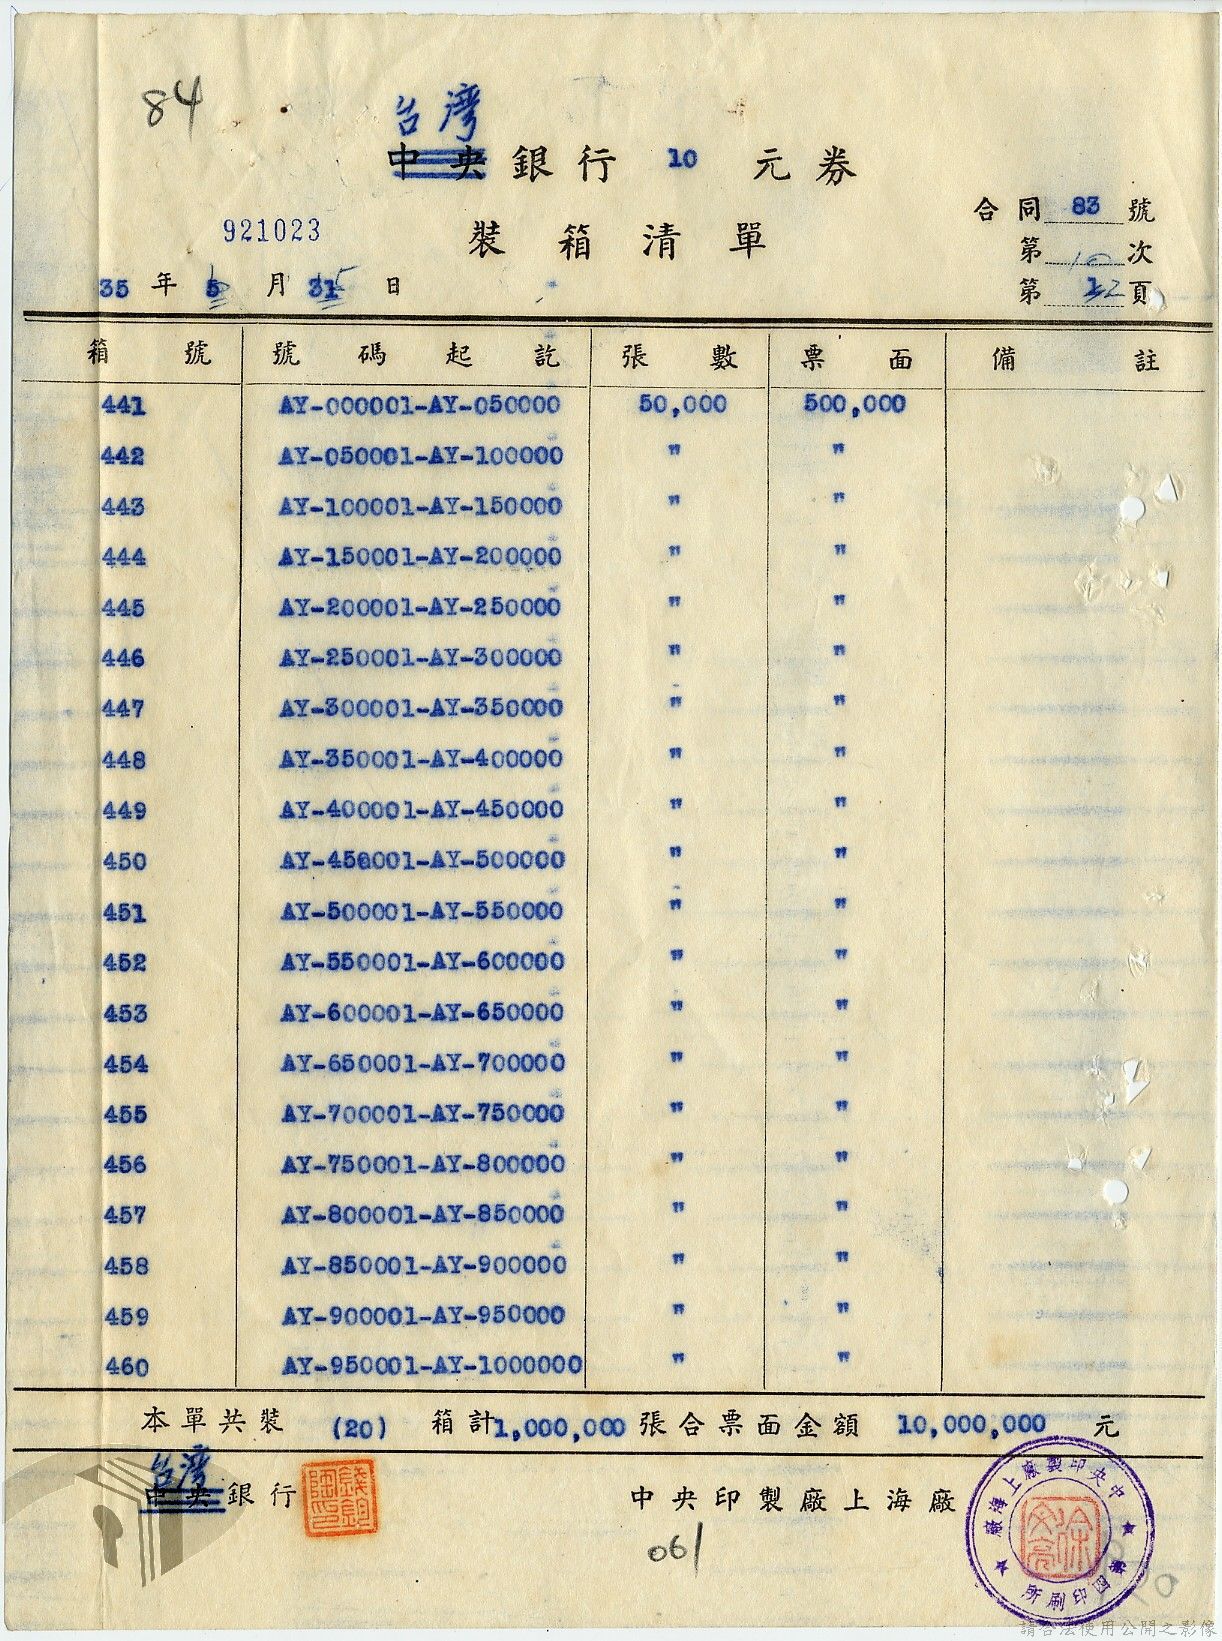 84
台灣
中央銀行 10 元券
合同 83 號
921023
裝箱清單
第 10 次
35 年 月 日
第 頁
箱號 號碼起訖 張數 票面 備註
441 AY-000001-AY-050000 50,000 500,000
442 AY-050001-AY-100000 " "
443 AY-100001-AY-150000 " "
444 AY-150001-AY-200000 " "
445 AY-200001-AY-250000 " "
446 AY-250001-AY-300000 " "
447 AY-300001-AY-350000 " "
448 AY-350001-AY-400000 " "
449 AY-400001-AY-450000 " "
450 AY-450001-AY-500000 " "
451 AY-500001-AY-550000 " "
452 AY-550001-AY-600000 " "
453 AY-600001-AY-650000 " "
454 AY-650001-AY-700000 " "
455 AY-700001-AY-750000 " "
456 AY-750001-AY-800000 " "
457 AY-800001-AY-850000 " "
458 AY-850001-AY-900000 " "
459 AY-900001-AY-950000 " "
460 AY-950001-AY-1000000 " "
本單共裝 (20) 箱計 1,000,000 張合票面金額 10,000,000 元
台灣
中央銀行
中央印製廠上海廠
061
中央印製廠上海廠
印刷所
請合法使用公開之影像